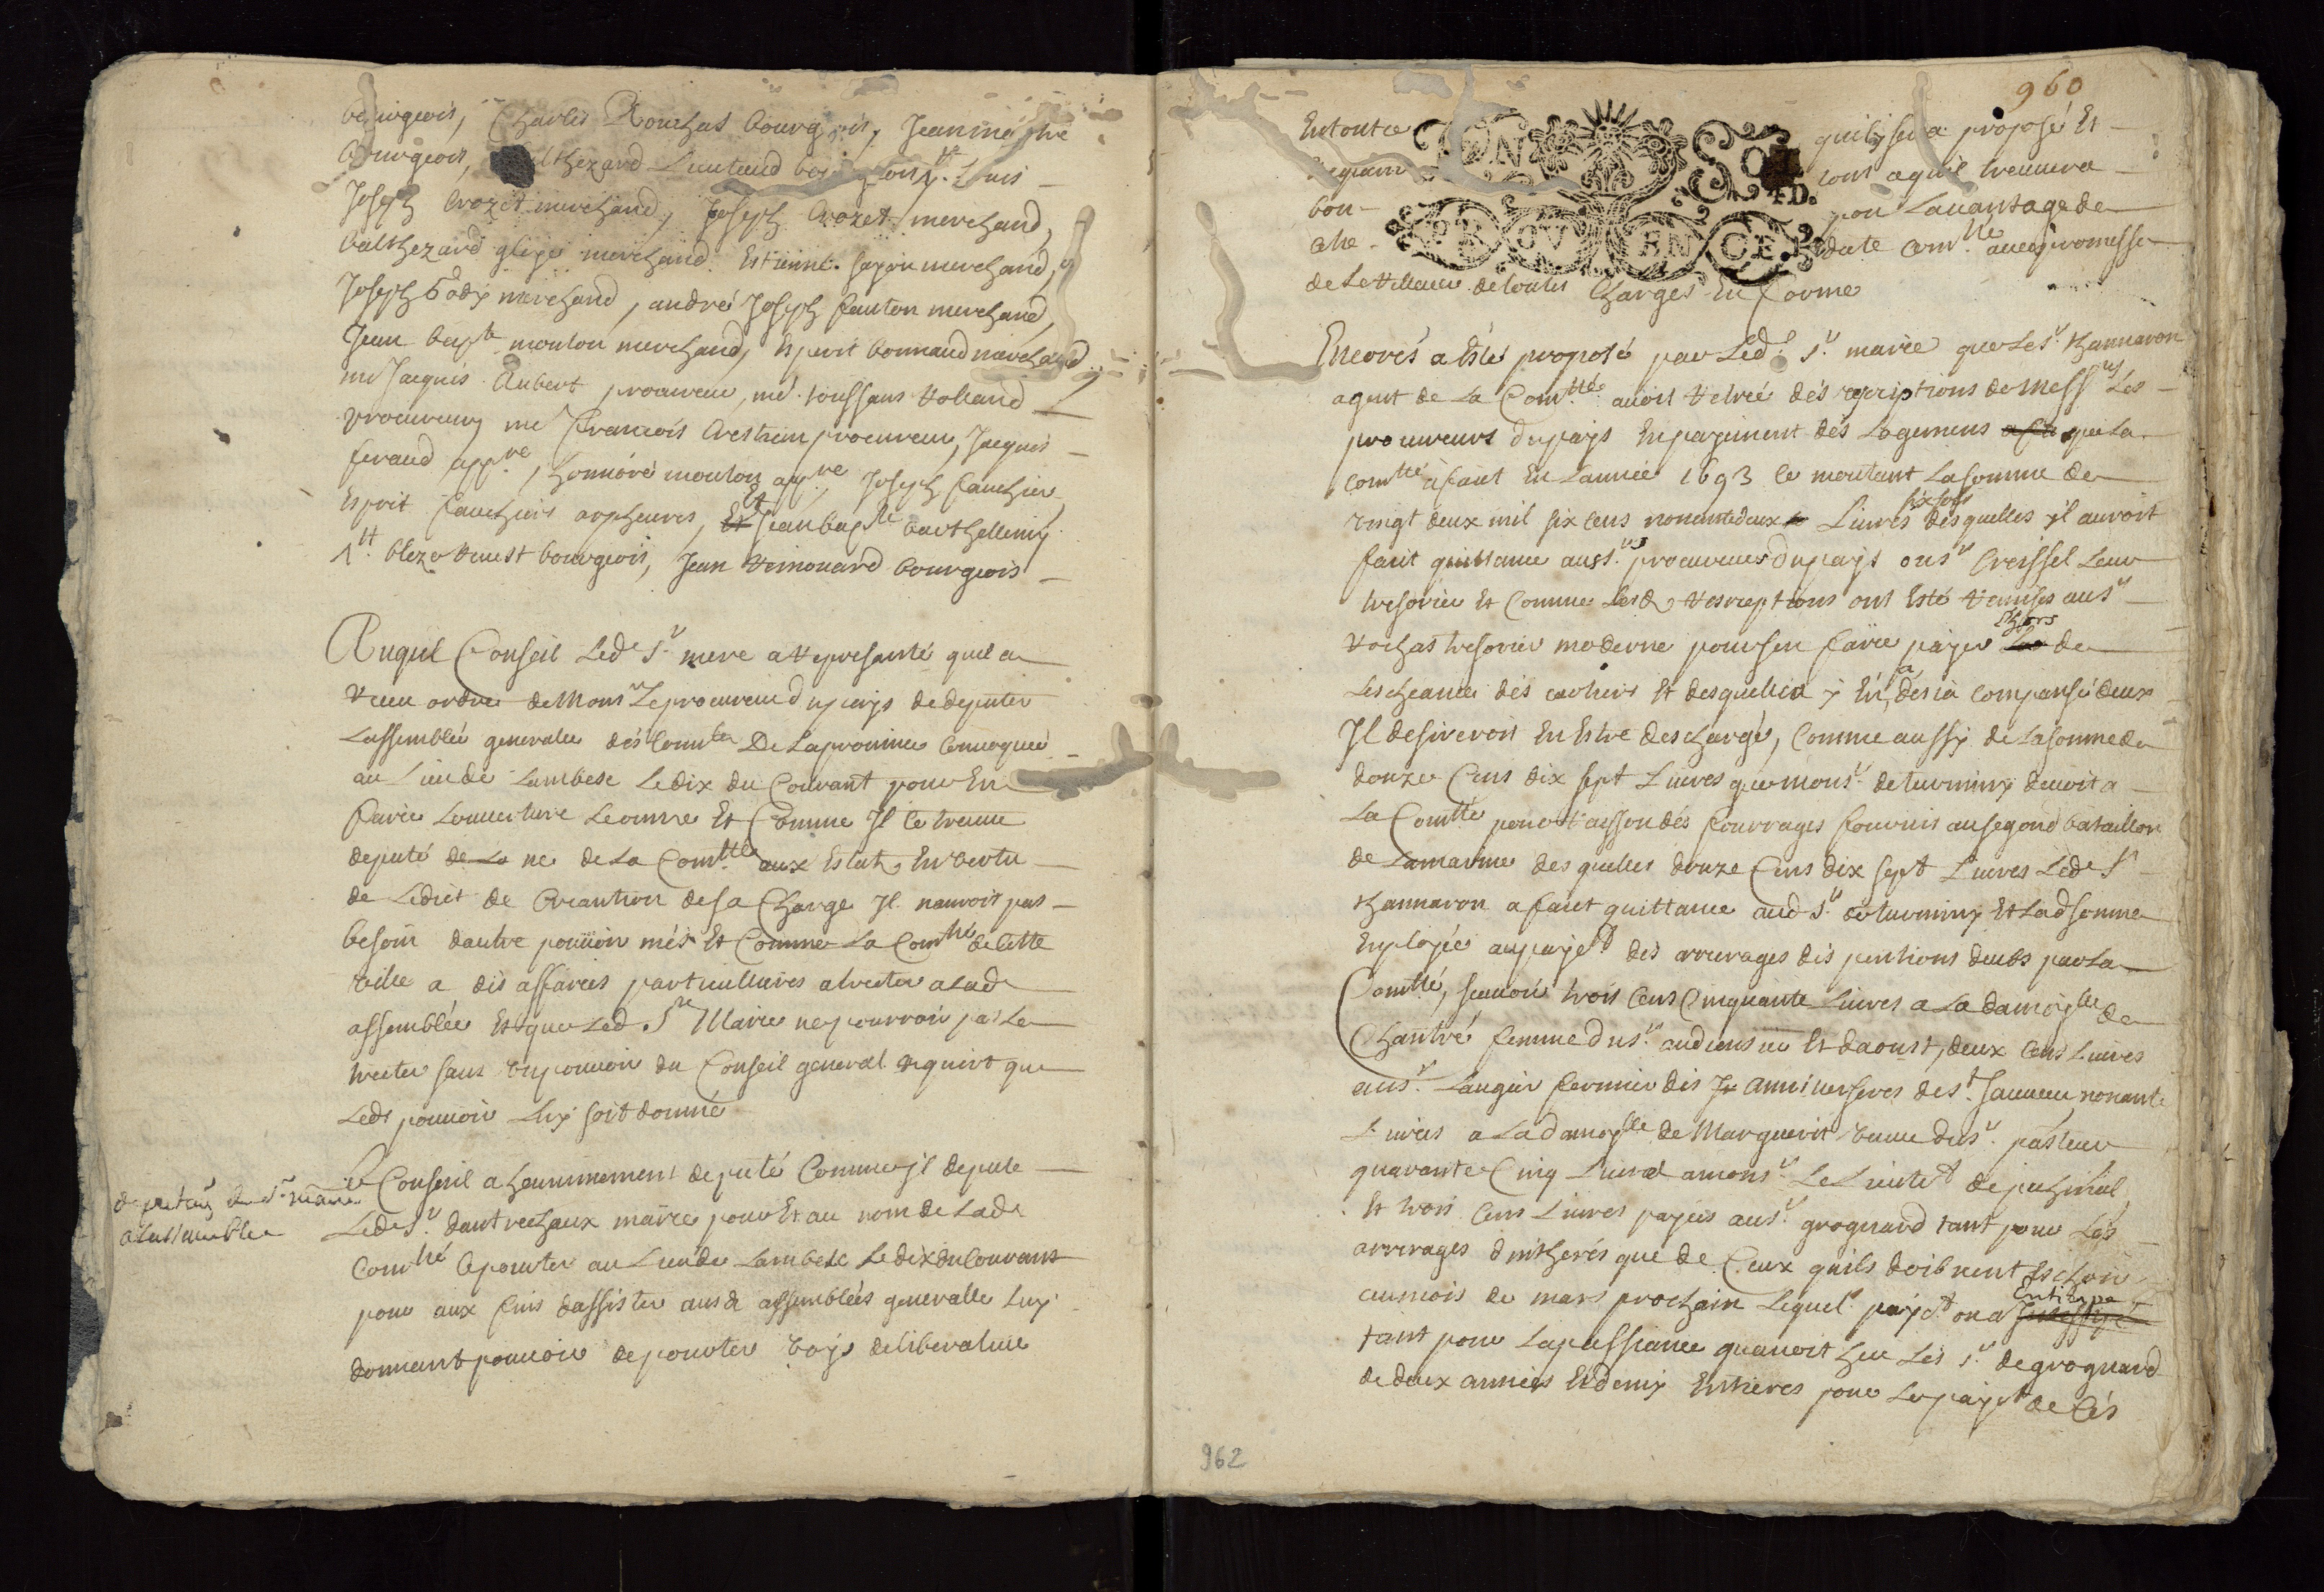 bourgeois, Charles Rouchas bourgeois, Jean
bourgeois, althezard Lieutaud Louis
Joseph Crozet merchand, Joseph Crozet merchand,
balthezard merchand Estienne merchand,
Joseph body merchand, andré Joseph fauton merchand,
Jean bapte mouton merchand, Esperit bonnaud merchand
me Jacques Aubert procureur, me toussans Rolland
procureur, me francois Crestrim procureur, Jacques
feraud appre, honnoré mouton appre Joseph fauchier
Esprit fauchier orpheuvres, Et Et Jean bapte barthellemy
bleze bourgeois, Jean Reinouard bourgeois
Auquel Conseil Ledt Sr mere a Representé quil a
Receu ordre de Monsr Le procureur du pays de deputer
Lassemblée generale dés Comtés De La province Convoquée
au Lieu de Lambesc Le dix du Courant pour En
faire Louverture Et Comme Il Ce treuve
deputé de La ne de La Comtté aux Estats En vertu
de Lediet de Creantion de sa Charge Il nauroit pas
besoin dautre pouvoir més Et Comme La Comtté de Cette
ville a dés affaires particullieres a treter a Lade
assemblée Et que Led. Sr Maire ne pourroit pas Le
treter sans un pouvoir du Conseil general Requiert que
Ledt pouvoir Luy soit donné
deputan du Sr maire
a Lassemblée
Le Conseil a heunimement deputé Comme jl depute
Ledt Sr dantrechaux maire pour Et au nom de Lade
Comtté Ce pourter au Lieu de Lambesc Le dix du Courant
pour aux fins dassister ausd assemblées generalle Luy
donnant pouvoir de pourter voys deliberative
960
En toutce quily sera proposé Et
tout a quil treuvera
bon pour Lavantage de
ladite Comtté avec promesse
GEN SOL 4D.
PROVENCE
de Le Rellever de toutes Charges En forme
Encorés a Esté proposé par Led. Sr. maire que Le Sr. Channaron
agent de La Comtté. auoit Retiré dés rescriptions de Messrs Les
procureurs du pays En payement dés Logemens a fa que La
Comtté a faict En Lannée 1693 Ce montant La somme de
vingt deux mil six Cens nonante deux Livres six sols desquelles il auroit
fait quittance aux srs procureurs du pays ou sr Creissel Leur
tresorier Et Comme Lesd Rescreptions ont Esté Remises au sr
Rochas tresorier moderne pour sen faire payer Lhors de
Lescheance dés cachiers Et desquelles y En a desia Compansé deux
Il desireroit En Estre deschargé, Comme aussy de La somme de
douze Cens dix sept Livres que monsr. de turminy devoit a
La Comtté pour Raison dés fourrages fournis au segond bataillon
de Lamarine des quelles douze Cens dix sept Livres Ledt Sr
Channaron a faict quittance aud Sr. de turminy Et Lad somme
Employée au payet dés arrerages dés pentions deubs par La
Comtté, scavoir trois Cens Cinquante Livres a La damoyelle de
Chantré femme du sr. Et daoust, deux Cens Livres
au sr. Laugier fermier dés Ix anniverseres de st. sauveur, nonante
Livres a La damoyelle de Marguerit veuve du sr. pasteur
quarante Cinq Livres a monsr Le Lieutent de puchinel,
Et trois Cens Livres payées au sr. grognard tant pour Lés
arrerages dintherés que de Ceux quils doibvent Eschoir
au mois de mars prochain Lequel payet. on a Entisipé
tant pour La passiance quauoit heu Lés Sr. de grognard
de deux années Et demy Entieres pour Le payet de Cés
962